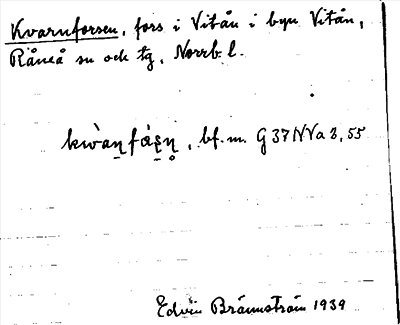 Kvarnforsen, fors i Vitån i byn Vitån,
Råneå sn och tg, Norrb. l.
kẁan̠fàs̠n̥, bf. m. G 37 NVa 3, 55
Edvin Brännström 1939